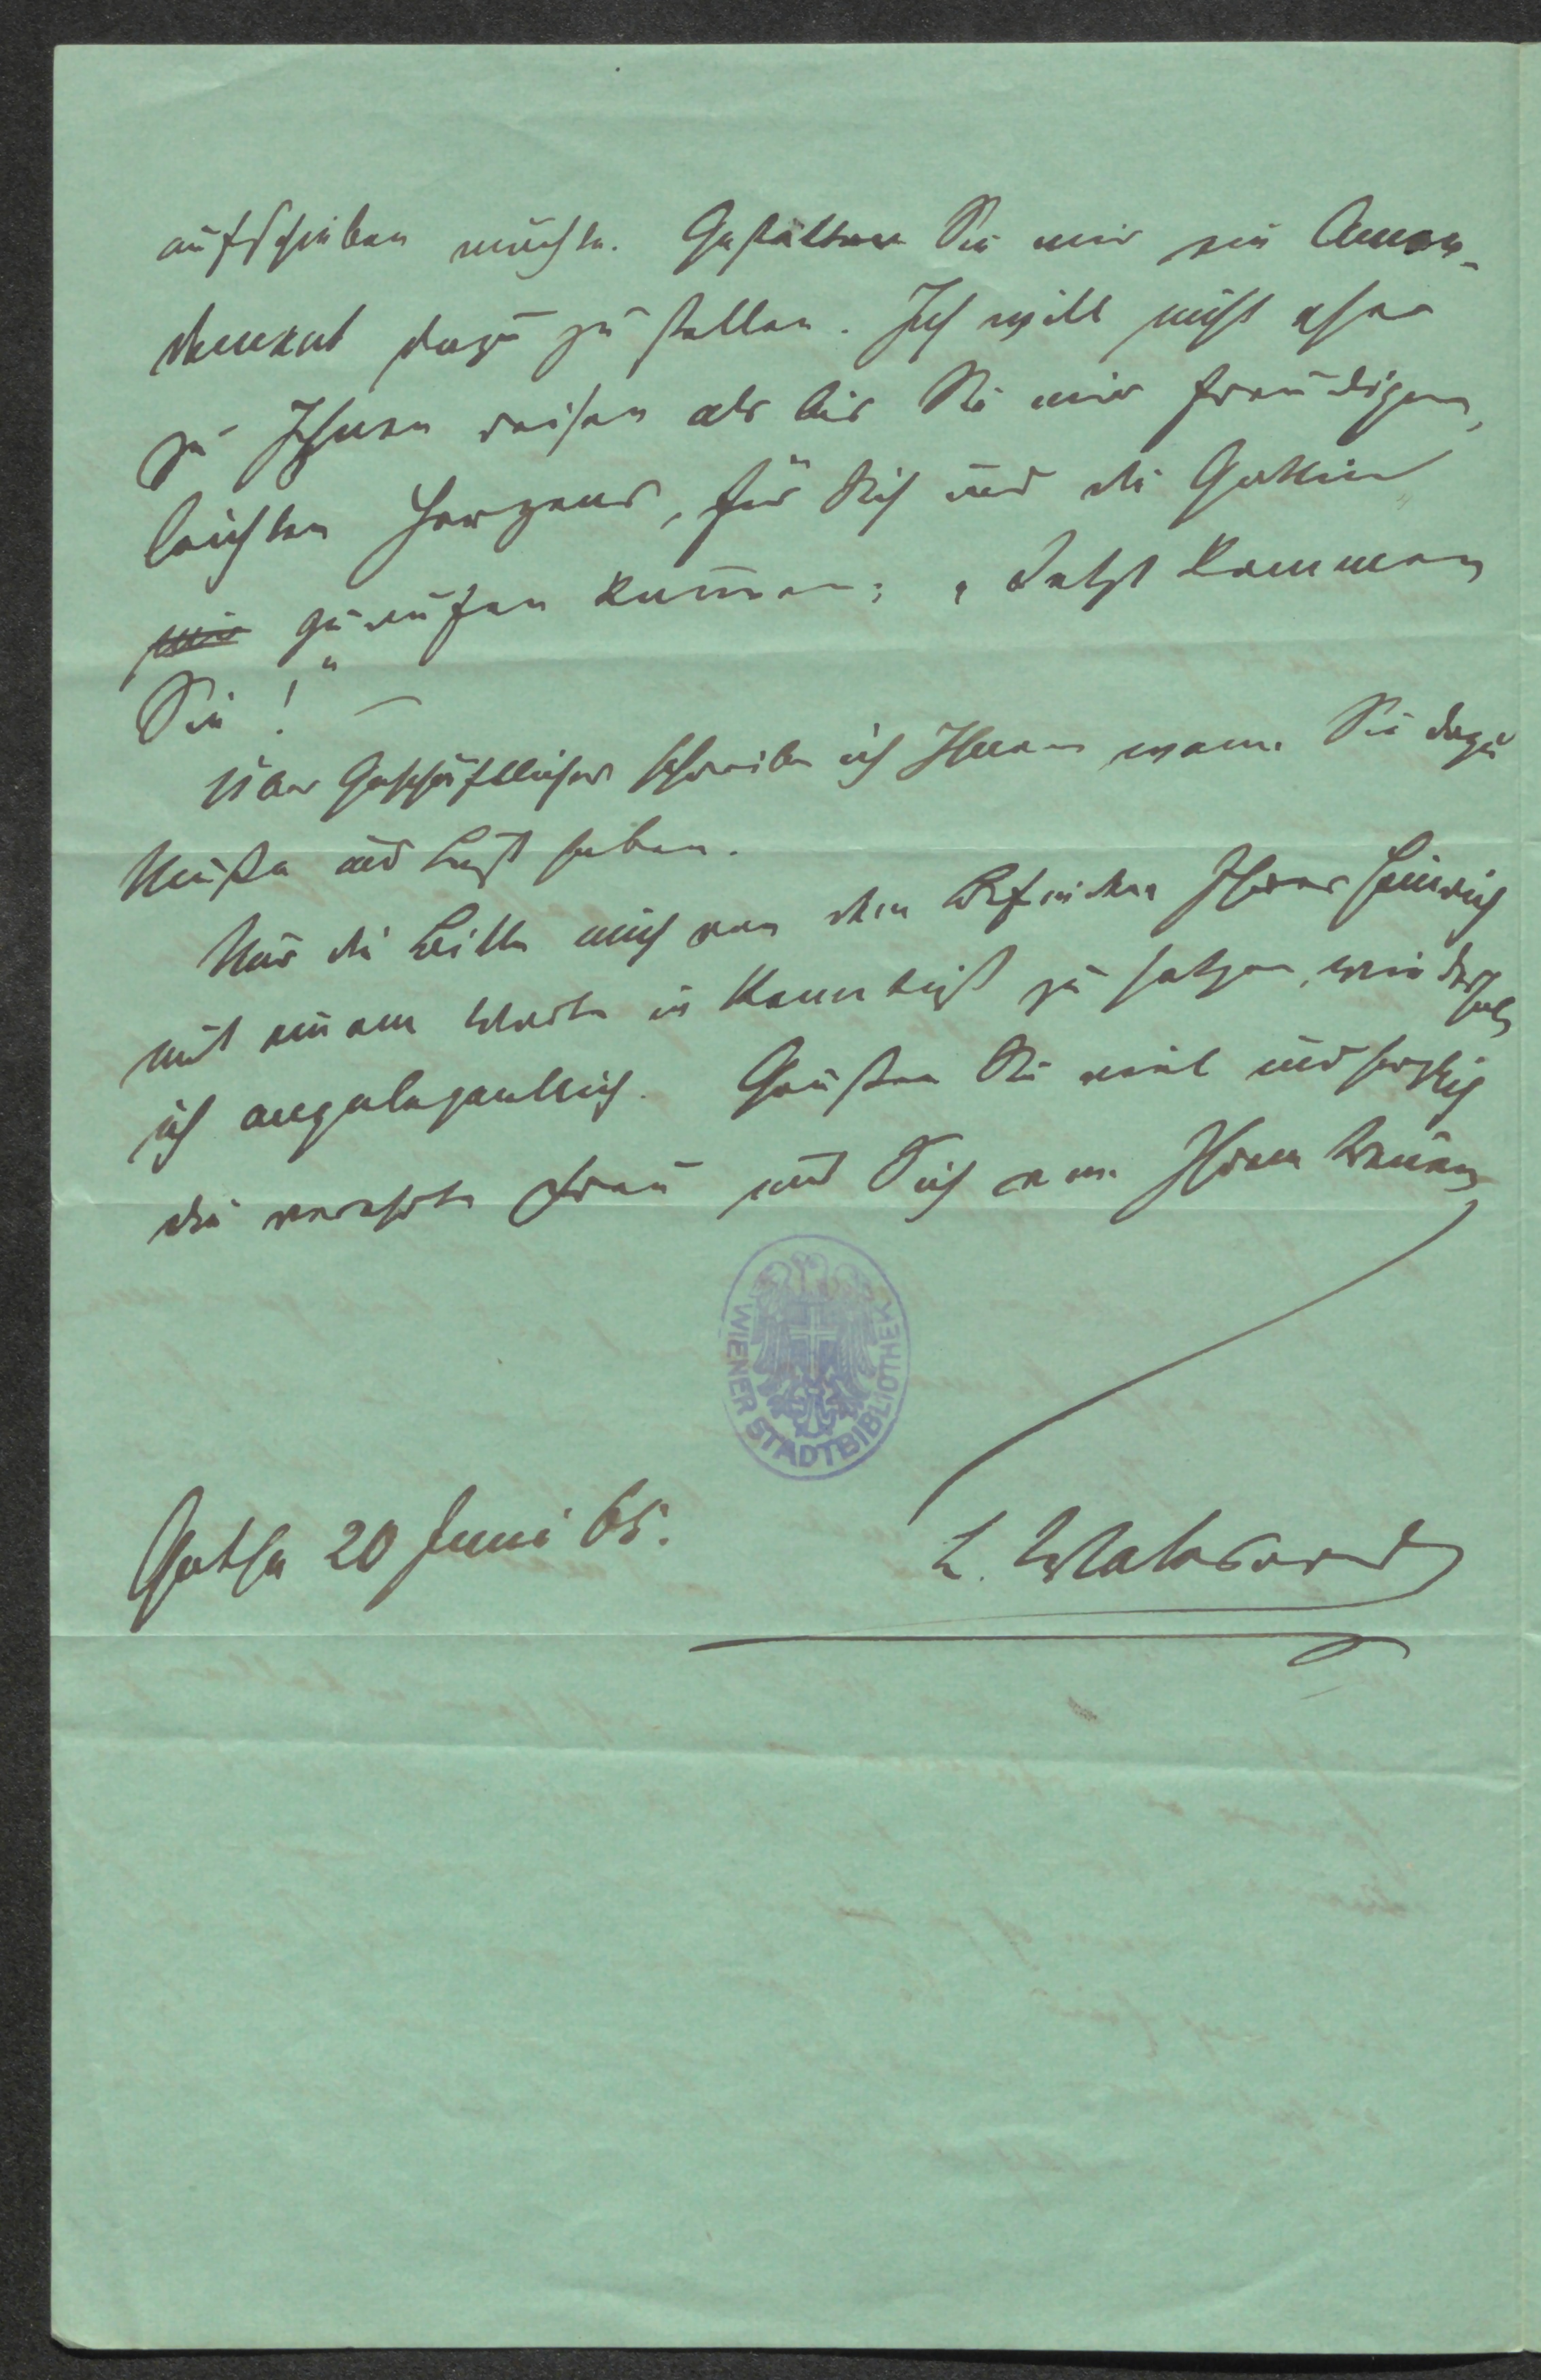 aufschieben möchte. Gestatten Sie mir ein Amen-
dement dazu zu stellen. Ich will nicht eher
zu Ihnen reisen als bis Sie mir freudigen,
leichten Herzens, für Sich und die Gattin
mir zurufen können: „Jetzt kommen
Sie!" —
Über Geschäftliches schreibe ich Ihnen wenn Sie dazu
Muße und Lust haben.
Nur die Bitte mich von dem Befinden Ihres Heinrich
mit einem Worte in Kenntniß zu setzen, wiederhole
ich angelegentlich. Grüßen Sie viel und herzlich
die verehrte Frau und Sich von Ihrem treuen
WIENER STADTBIBLIOTHEK
Gotha 20 Juni 65.
L. Walesrode